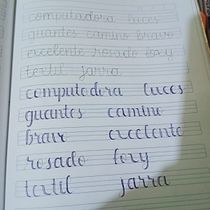 computadora luces
guantes camino bravo
excelente rosado foxy
textil jarra
computadora luces
guantes camino
bravo excelente
rosado foxy
textil jarra